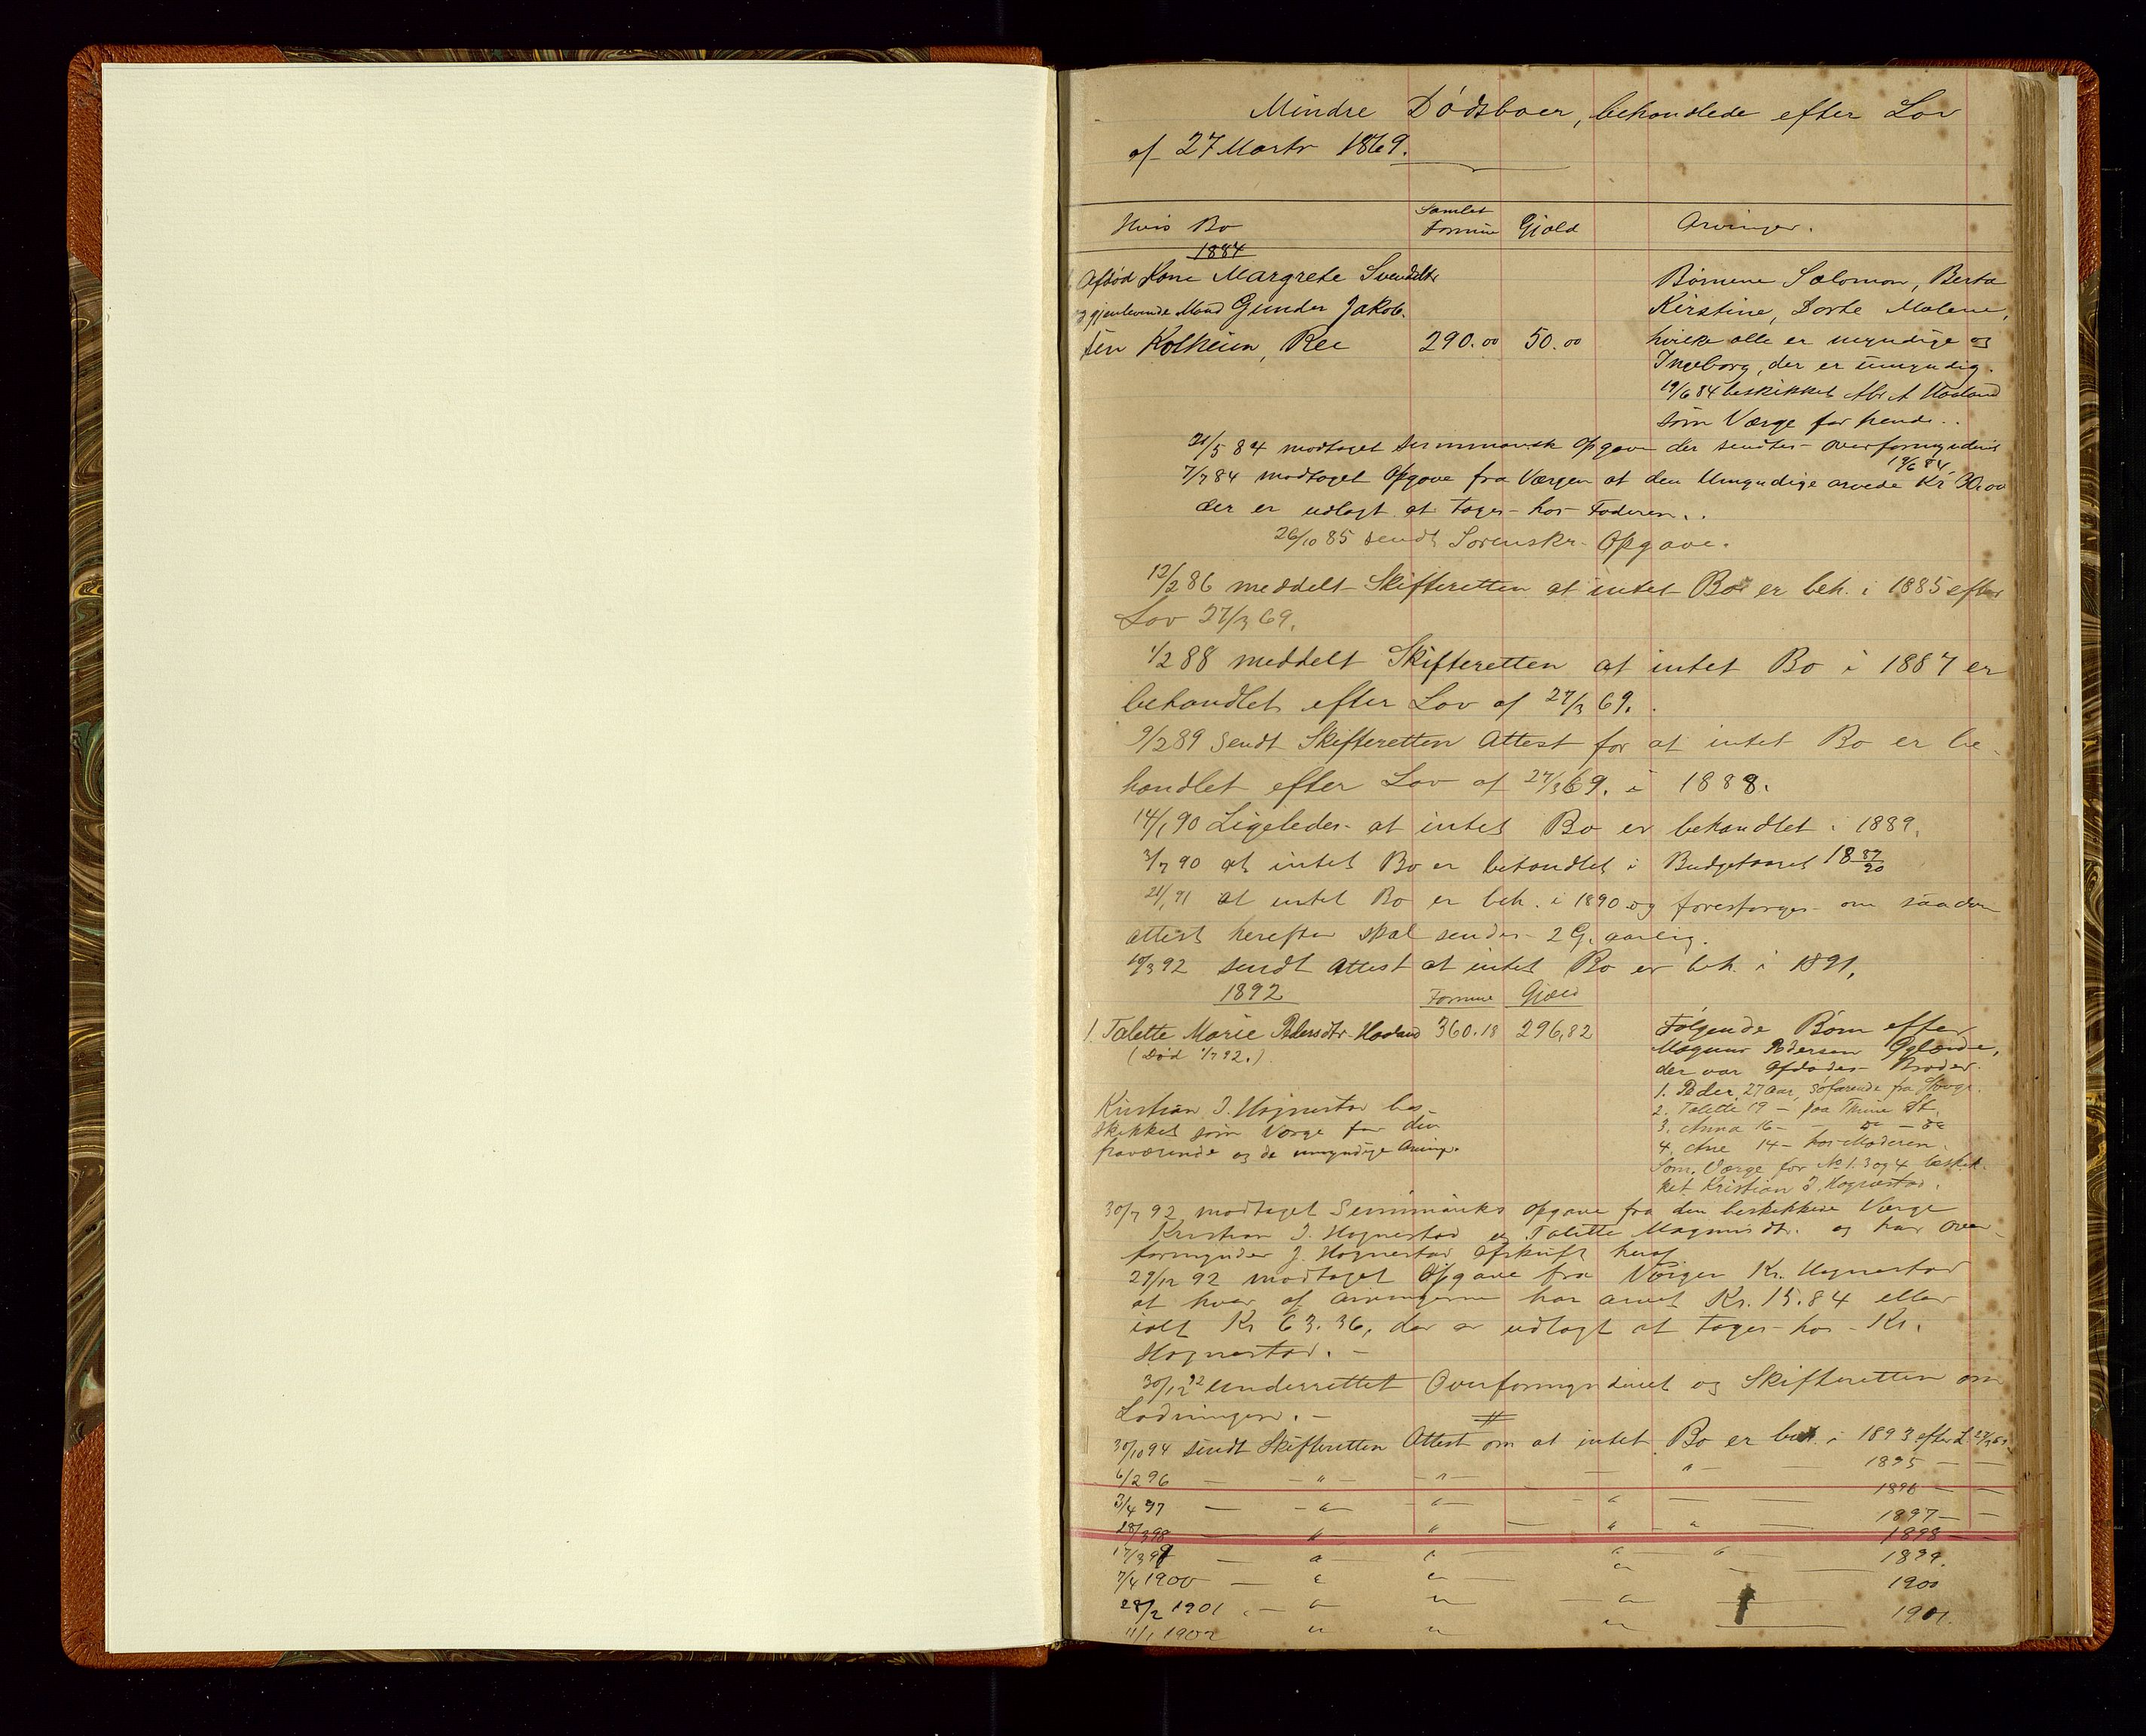 Mindre Dødsboer, behandlede efter Lov
af 27 Marts 1869.
Hvis Bo
Samlet
Formue Gjæld Arvinger.
1884
Afdød Kone Margrete Svendsdtr
og gjenlevende Mand Gunder Jakob-
sen Kolheim, Ree 290.00 50.00
Børnene Salomon, Berta
Kirstine, Dorte Malene,
hvilke alle er myndige og
Ingeborg, der er umyndig.
19/6 84 beskikket A Haaland
som Værge for hende.
21/5 84 modtaget summarisk Opgave der sendtes Overformynderiet
19/6 84.
7/7 84 modtaget Opgave fra Værgen at den Umyndige arvede Kr 30.00
der er udlagt at tages hos Faderen.
26/10 85 sendt Sorenskr. Opgave.
12/2 86 meddelt Skifteretten at intet Bo er beh. i 1885 efter
Lov 27/3 69.
1/2 88 meddelt Skifteretten at intet Bo i 1887 er
behandlet efter Lov af 27/3 69.
9/2 89 sendt Skifteretten Attest for at intet Bo er be-
handlet efter Lov af 27/3 69. i 1888.
14/1 90 Ligeledes at intet Bo er behandlet i 1889.
3/7 90 at intet Bo er behandlet i Budgetaaret 18 89/90
21/1 91 at intet Bo er beh. i 1890 og forespørges om saadan
attest herefter skal sendes 2 G. aarlig.
10/3 92 sendt Attest at intet Bo er beh. i 1891.
1892 Formue Gjæld
1. Talette Marie Pedersdtr. Haaland 360.18 296,82
(Død 1/7 92.)
Følgende Børn efter
Magnus Pedersen Øglænde,
der var Afdødes Broder.
1. Peder, 27 Aar, søfarende fra
2. Talette 19 – paa Thime St.
3. Anna 16 – – do – do
4. Ane 14 – hos Moderen.
Som Værge for No 1. 3 og 4 beskik-
ket Kristian J. Hognestad.
Kristian J. Hognestad bes-
kikket som Værge for den
fraværende og de umyndige Arving.
30/7 92 modtaget Summarisk Opgave fra den beskikkede Værge
Kristian J. Hognestad og Talette Magnusdtr. og har Over-
formynder J. Hognestad Afskrift heraf
29/12 92 modtaget Opgave fra Værgen Kr. Hognestad
at hver af Arvingerne har arvet Kr. 15.84 eller
ialt Kr 63.36, der er udlagt at tages hos Kr.
Hognestad. –
30/12 92 underrettet Overformynderiet og Skifteretten om
Lodningen. –
30/10 94 sendt Skifteretten Attest om at intet Bo er beh. i 1893 efter L 27/3 69
6/2 96 — – " – – " – — " – — 1895 – –
3/4 97 — – " – " – " — — 1896 – –
28/3 98 — " " — " " — 1897 – –
1898 – –
17/3 99 — " " — " " — 1899.
7/4 1900 — " " — " — 1900
28/2 1901 — " " — " — 1901.
11/1 1902 " " " —